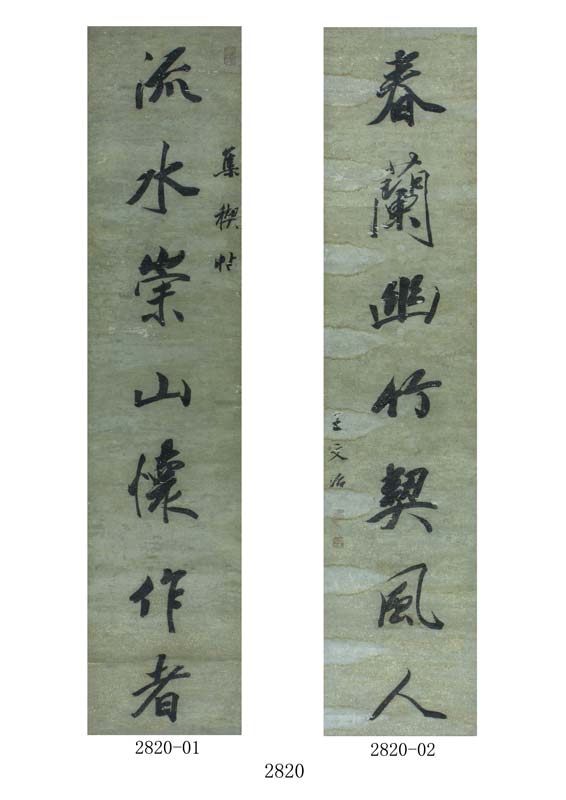 流水崇山懷作者
集禊帖
春蘭幽竹契風人
王文治
2820-01
2820-02
2820